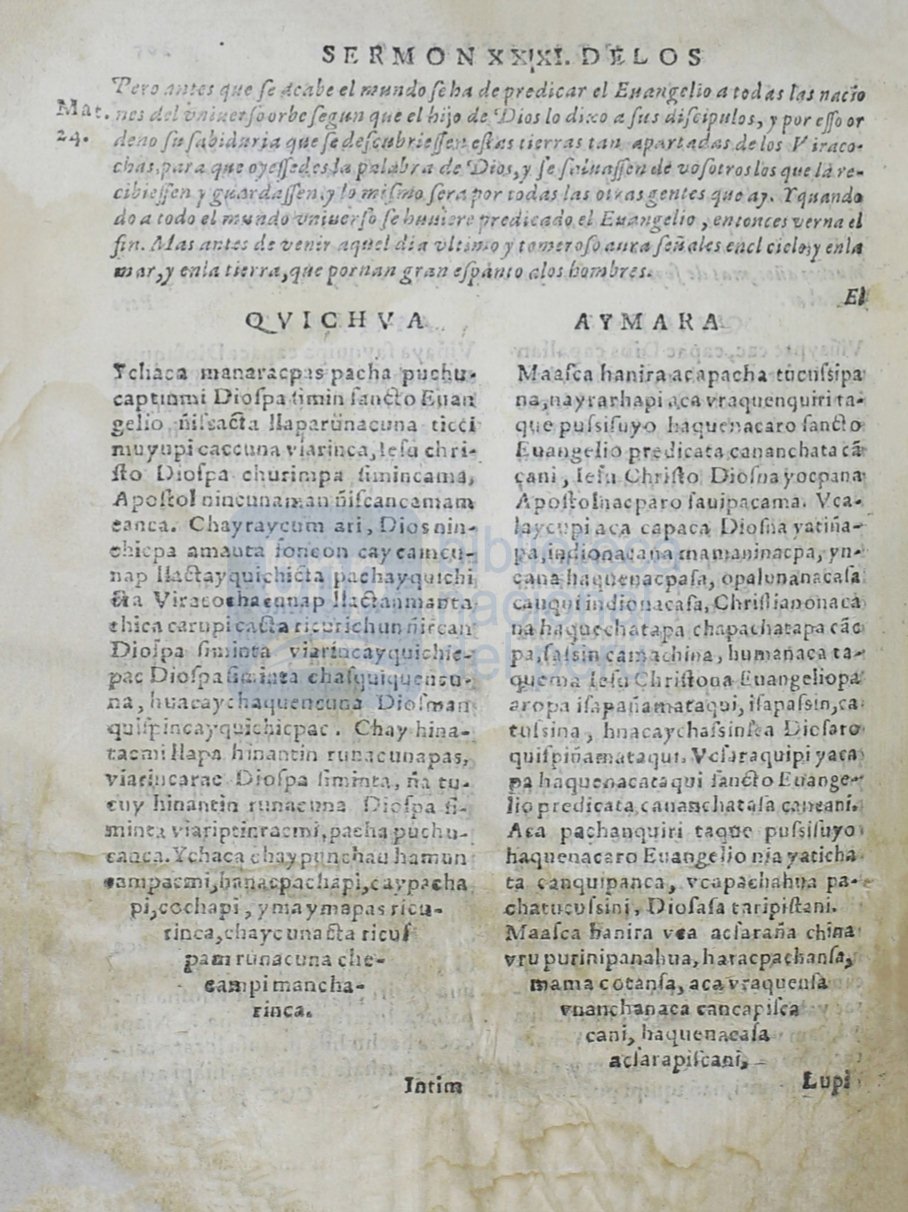 SERMON XXXI. DE LOS
Pero antes que se acabe el mundo se ha de predicar el Euangelio a todas las nacio
Mat. nes del vniuerso orbe segun que el hijo de Dios lo dixo a sus discipulos, y por esso or
24. deno su sabiduria que se descubriessen estas tierras tan apartadas de los Viraco-
chas, para que oyessedes la palabra de Dios, y se saluassen de vosotros los que la re-
cibiessen y guardassen, y lo mismo sera por todas las otras gentes que ay. Y quando
do a todo el mundo vniuerso se huuiere predicado el Euangelio, entonces verna el
fin. Mas antes de venir aquel dia vltimo y temeroso aura señales enel cielo, y enla
mar, y enla tierra, que pornan gran espanto alos hombres.
El
QVICHVA
Ychaca manaracpas pacha puchu-
captinmi Diospa simin sancto Euan
gelio ñiscacta llapa runacuna ticci
muyupi caccuna viarinca, Iesu chri-
sto Diospa churimpa simincama,
Apostol nincunaman ñiscancamam
canca. Chayraycum ari, Dios nin-
chicpa amauta soncon cay camcu-
nap llactayquichicta pachayquichi
cta Viracochacunap llactanmanta
thica carupi cacta ricurichun ñircan
Diospa siminta viarincayquichic-
pac Diospa siminta chasquiquencu-
na, huacaychaquencuna Diosman
quispincayquichicpac. Chay hina-
tacmi llapa hinantin runacunapas,
viarincarac Diospa siminta, ña tu-
cuy hinantin runacuna Diospa si-
minta viariptinracmi, pacha puchu-
canca. Ychaca chay punchau hamun
campacmi, hanacpachapi, caypacha
pi, cochapi, ymaymapas ricu-
rinca, chaycunacta ricus
pam runacuna che-
campi mancha-
rinca.
Intim
AYMARA
Maasca hanira acapacha tucussipa
na, nayrarhapi aca vraquenquiri ta-
que pussisuyo haquenacaro sancto
Euangelio predicata cananchata cã
cani, Iesu Christo Diosna yocpana
Apostolnacparo sauipacama. Vca-
laycupi aca capaca Diosna yatiña-
pa, indionacana mamaninacpa, yn-
cana haquenacpasa, opalunanacasa
cauqui indionacasa, Christianonaca
na haquechatapa chapachatapa cãc
pa, sassin camachina, humanaca ta-
quema Iesu Christona Euangeliopa
aropa isapañamataqui, isapassin, ca
tussina, huacaychassinsca Diosaro
quispiñamataqui. Vcsaraquipi yaca
pa haquenacataqui sancto Euange-
lio predicata cauanchatasa cancani.
Aca pachanquiri taque pussisuyo
haquenacaro Euangelio nia yaticha
ta canquipanca, vcapachahua pa-
chatucussini, Diosasa taripistani.
Maasca hanira vca acsaraña china
vru purinipanahua, haracpachansa,
mama cotansa, aca vraquensa
vnanchanaca cancapisca
cani, haquenacasa
acsarapiscani,
Lupi